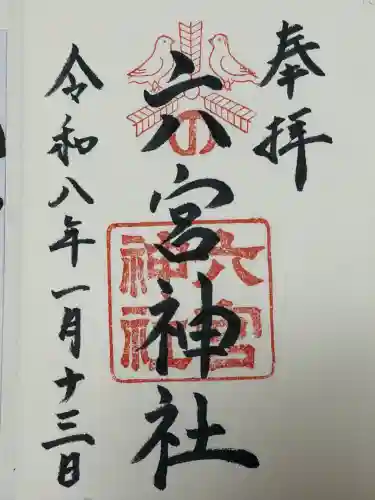 奉拝
六宮神社
六宮
神社
令和八年一月十三日